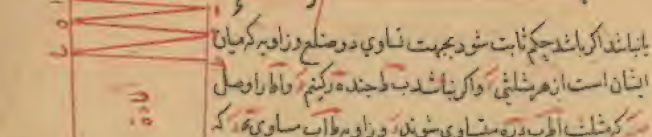 یا نباشد اگر باشد حکم ثابت شود بجهت تساوی دو ضلع و زاویه که میان
ایشان است از هر مثلثی و اگر نباشد ب ط جند ه ر کنیم و ا ط را وصل
که مثلث ا ط ب د ره متساوی شوند و زاویه ط ا ب مساوی